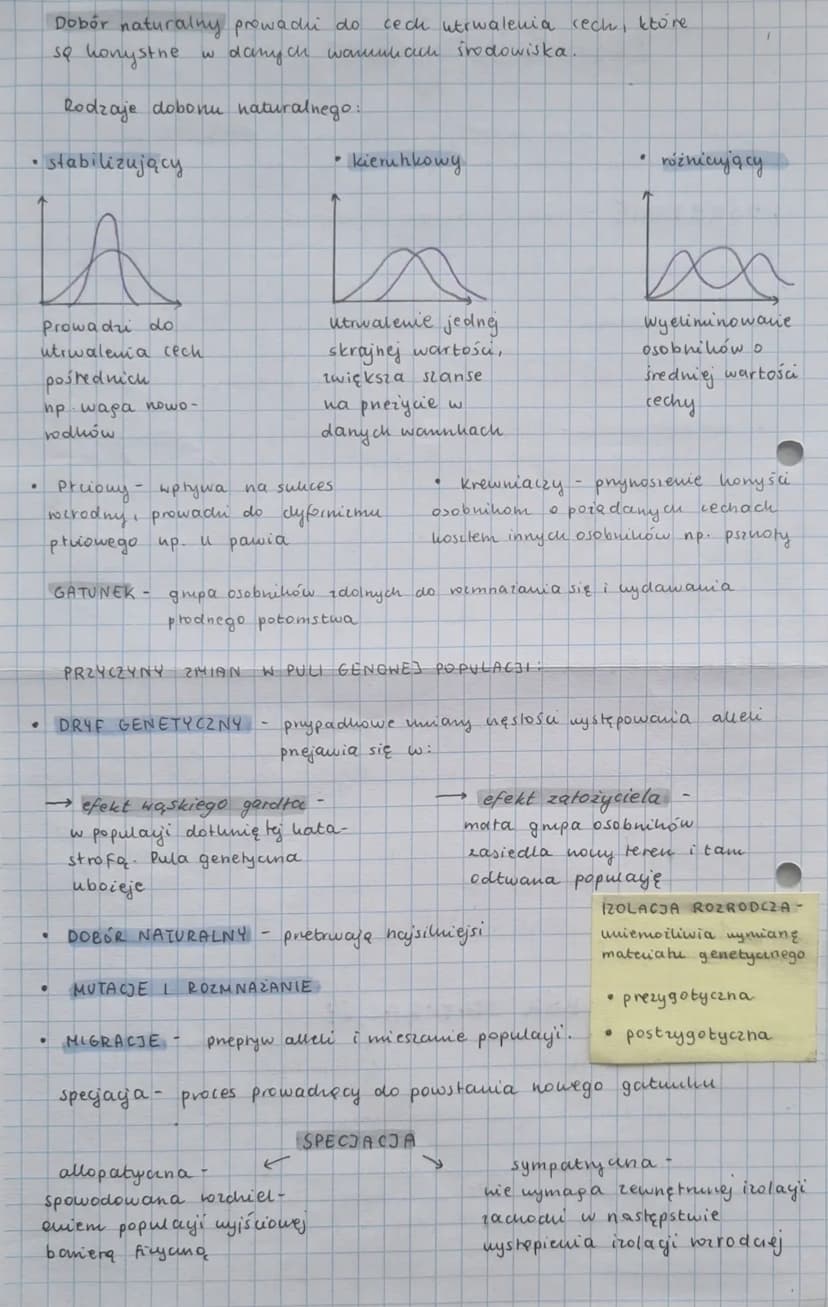 Dobór naturalny prowadzi do cech utrwalenia cech, które
są korzystne w danych warunkach środowiska.
Rodzaje doboru naturalnego:
• stabilizujący
Prowadzi do
utrwalenia cech
pośrednich
np. waga nowo-
rodków
• kierunkowy
utrwalenie jednej
skrajnej wartości,
zwiększa szanse
na przeżycie w
danych warunkach
• różnicujący
Wyeliminowanie
osobników o
średniej wartości
cechy
• Płciowy - wpływa na sukces
rozrodny, prowadzi do dyformizmu
płciowego np. u pawia
• Krewniaczy - przynoszenie korzyści
osobnikom o pożądanych cechach
kosztem innych osobników np. pszczoły
GATUNEK - grupa osobników zdolnych do rozmnażania się i wydawania
płodnego potomstwa
PRZYCZYNY ZMIAN W PULI GENOWEJ POPULACJI:
• DRYF GENETYCZNY - przypadkowe zmiany częstości występowania alleli
przejawia się w:
→ efekt wąskiego gardła -
w populacji dotkniętej kata-
strofą. Pula genetyczna
ubożeje
→ efekt założyciela -
mała grupa osobników
zasiedla nowy teren i tam
odtwarza populację
• DOBÓR NATURALNY - przetrwają najsilniejsi
• MUTACJE I ROZMNAŻANIE
• MIGRACJE - przepływ alleli i mieszanie populacji.
IZOLACJA ROZRODCZA -
uniemożliwia wymianę
materiału genetycznego
• prezygotyczna
• postzygotyczna
specjacja - proces prowadzący do powstania nowego gatunku
SPECJACJA
allopatryczna -
spowodowana rozdziel-
eniem populacji wyjściowej
barierą fizyczną
sympatryczna -
nie wymaga zewnętrznej izolacji
zachodzi w następstwie
wystąpienia izolacji rozrodczej